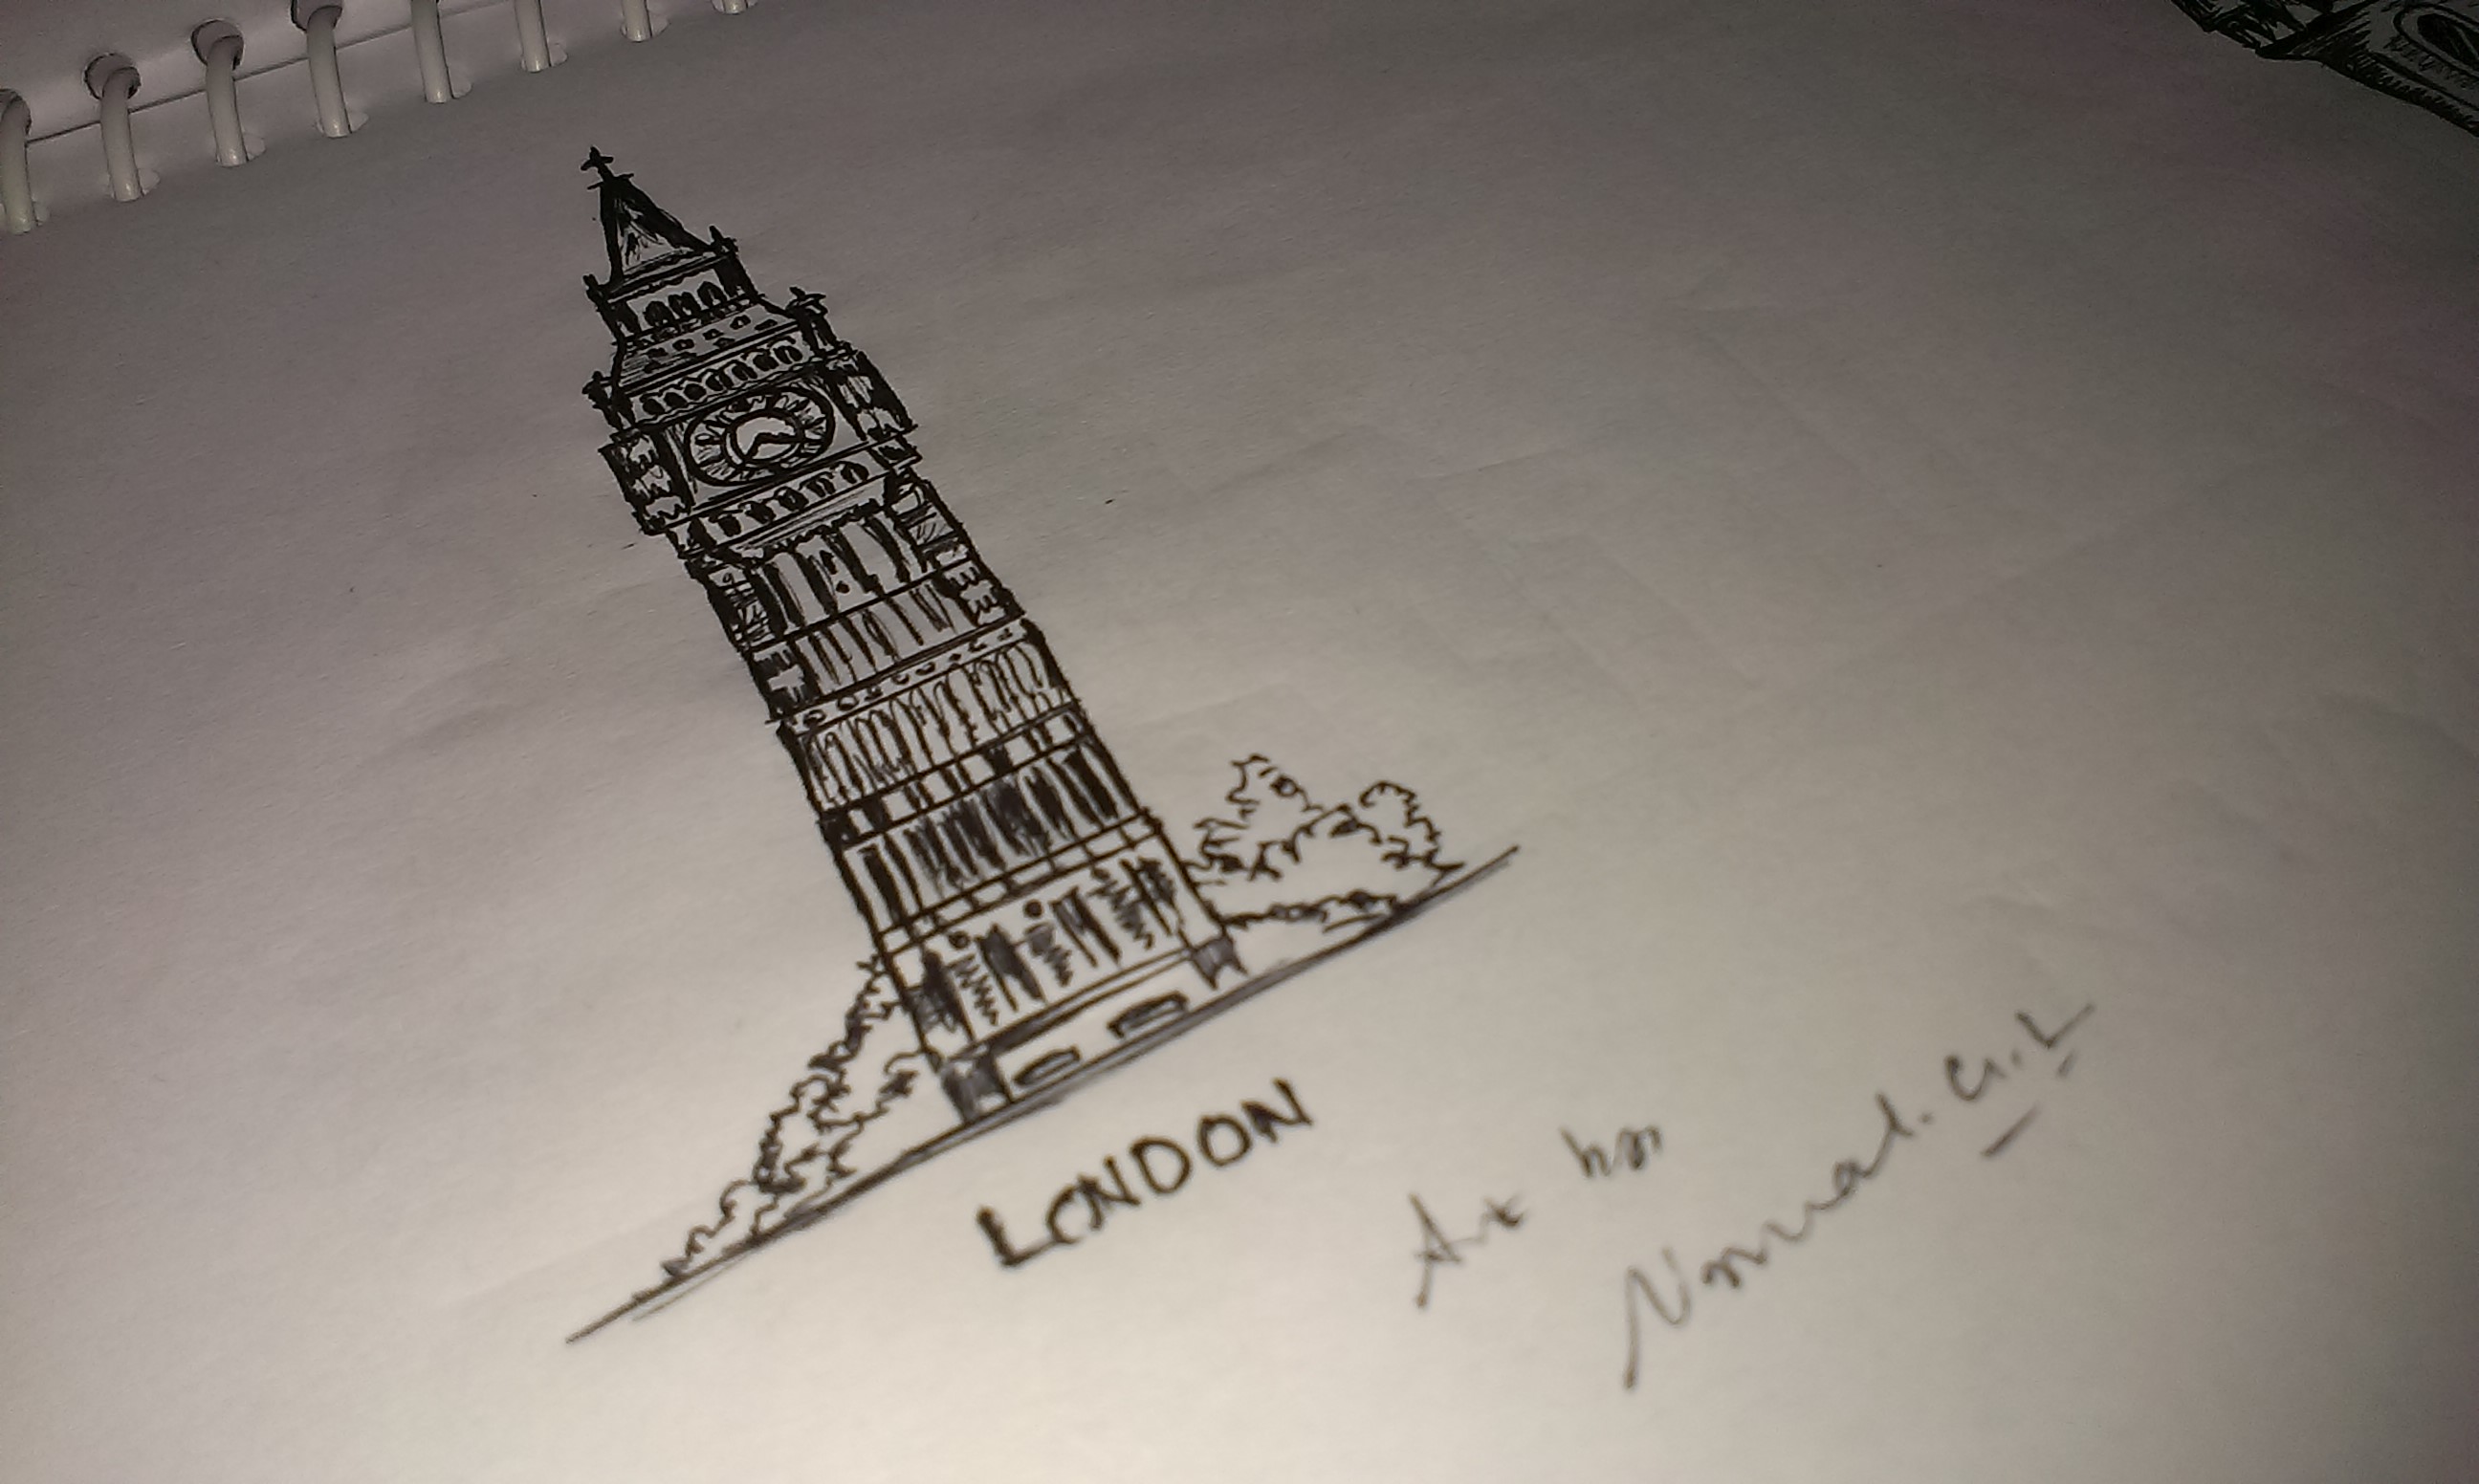 LONDON
Art by
Nirmal. G.L